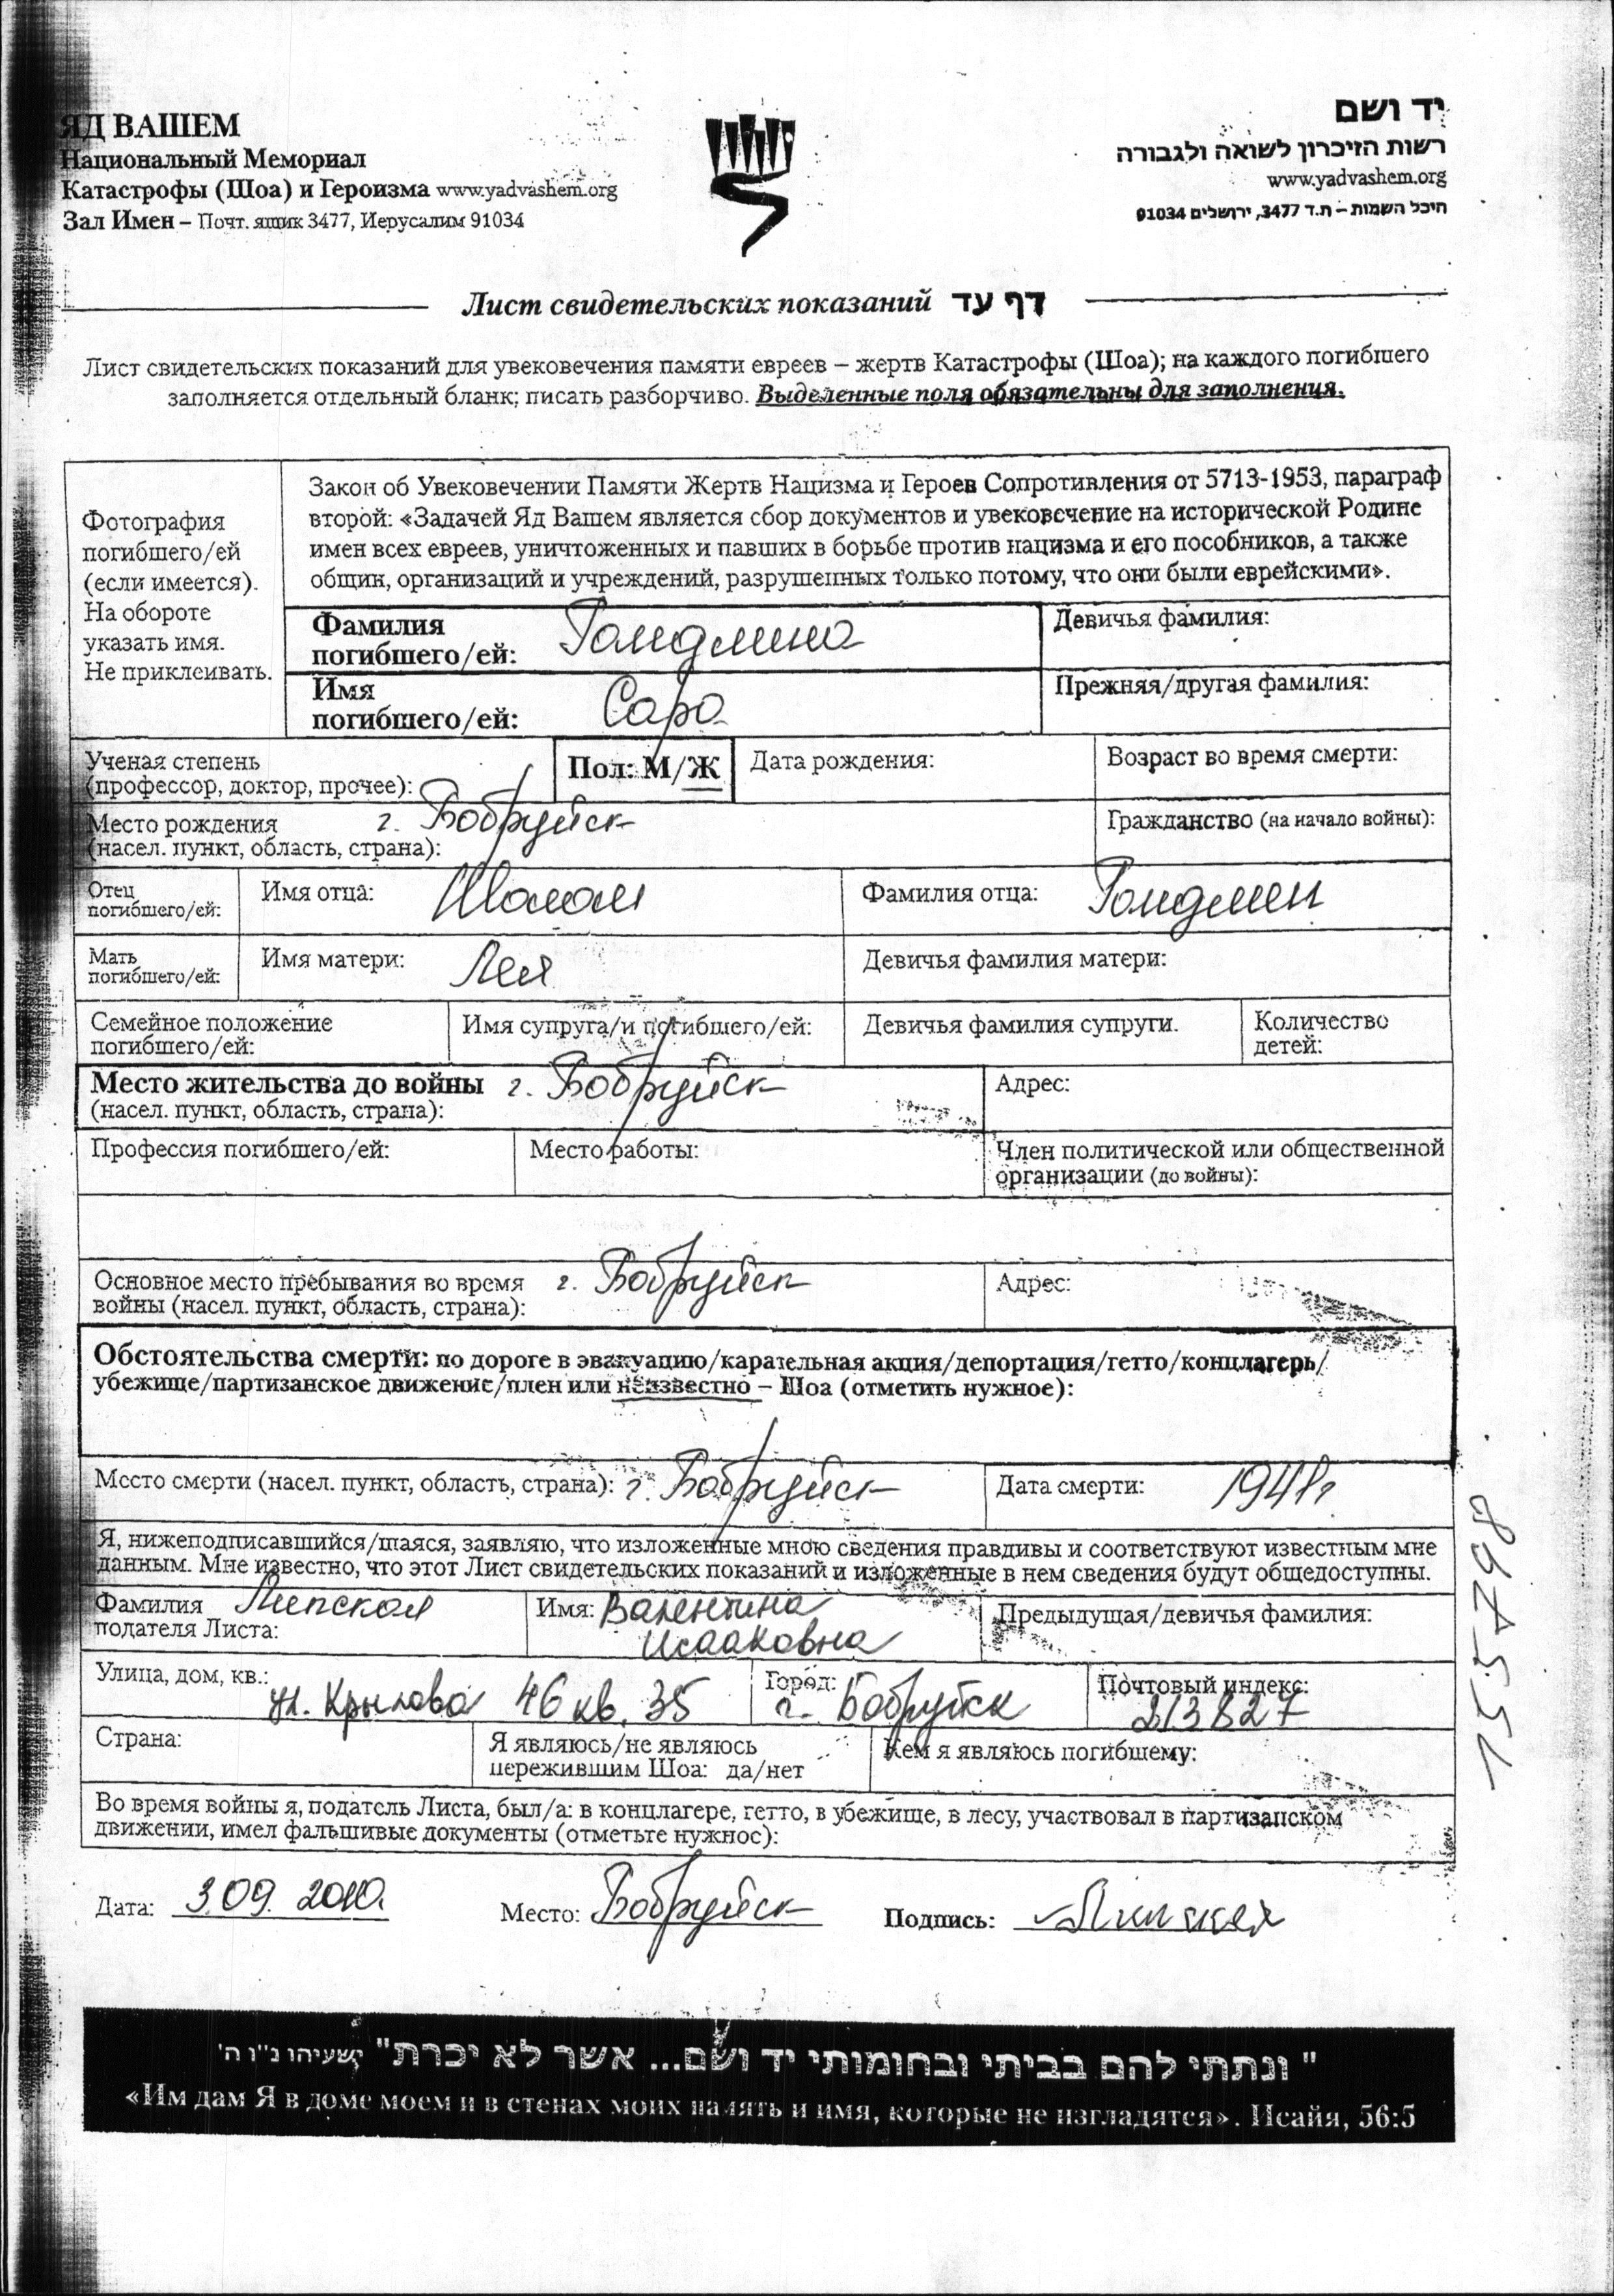 ЯД ВАШЕМ
Национальный Мемориал
Катастрофы (Шоа) и Героизма www.yadvashem.org
Зал Имен – Почт. ящик 3477, Иерусалим 91034
יד ושם
רשות הזיכרון לשואה ולגבורה
www.yadvashem.org
היכל השמות – ת.ד 3477, ירושלים 91034
Лист свидетельских показаний דף עד
Лист свидетельских показаний для увековечения памяти евреев – жертв Катастрофы (Шоа); на каждого погибшего
заполняется отдельный бланк; писать разборчиво. Выделенные поля обязательны для заполнения.
Фотография
погибшего/ей
(если имеется).
На обороте
указать имя.
Не приклеивать.
Закон об Увековечении Памяти Жертв Нацизма и Героев Сопротивления от 5713-1953, параграф
второй: «Задачей Яд Вашем является сбор документов и увековечение на исторической Родине
имен всех евреев, уничтоженных и павших в борьбе против нацизма и его пособников, а также
общин, организаций и учреждений, разрушенных только потому, что они были еврейскими».
Фамилия
погибшего/ей:
Девичья фамилия:
Имя
погибшего/ей: Сара
Прежняя/другая фамилия:
Ученая степень
(профессор, доктор, прочее):
Пол: М/Ж
Дата рождения:
Возраст во время смерти:
Место рождения г. Бобруйск
(насел. пункт, область, страна):
Гражданство (на начало войны):
Отец
погибшего/ей:
Имя отца:
Фамилия отца:
Мать
погибшего/ей:
Имя матери: Лея
Девичья фамилия матери:
Семейное положение
погибшего/ей:
Имя супруга/и погибшего/ей:
Девичья фамилия супруги.
Количество
детей:
Место жительства до войны г. Бобруйск
(насел. пункт, область, страна):
Адрес:
Профессия погибшего/ей:
Место работы:
Член политической или общественной
организации (до войны):
Основное место пребывания во время г. Бобруйск
войны (насел. пункт, область, страна):
Адрес:
Обстоятельства смерти: по дороге в эвакуацию/карательная акция/депортация/гетто/концлагерь/
убежище/партизанское движение/плен или неизвестно – Шоа (отметить нужное):
Место смерти (насел. пункт, область, страна): г. Бобруйск
Дата смерти: 1941г
Я, нижеподписавшийся/шаяся, заявляю, что изложенные мною сведения правдивы и соответствуют известным мне
данным. Мне известно, что этот Лист свидетельских показаний и изложенные в нем сведения будут общедоступны.
Фамилия Липская
подателя Листа:
Имя: Валентина
Исааковна
Предыдущая/девичья фамилия:
Улица, дом, кв.: ул. Крылова 46 кв. 35
Город: г. Бобруйск
Почтовый индекс: 213827
Страна:
Я являюсь/не являюсь
пережившим Шоа: да/нет
Кем я являюсь погибшему:
Во время войны я, податель Листа, был/а: в концлагере, гетто, в убежище, в лесу, участвовал в партизанском
движении, имел фальшивые документы (отметьте нужное):
Дата: 3.09. 2010. Место: Бобруйск Подпись: Липская
" ונתתי להם בביתי ובחומותי יד ושם... אשר לא יכרת" ישעיהו נ"ו ה'
«Им дам Я в доме моем и в стенах моих память и имя, которые не изгладятся». Исайя, 56:5